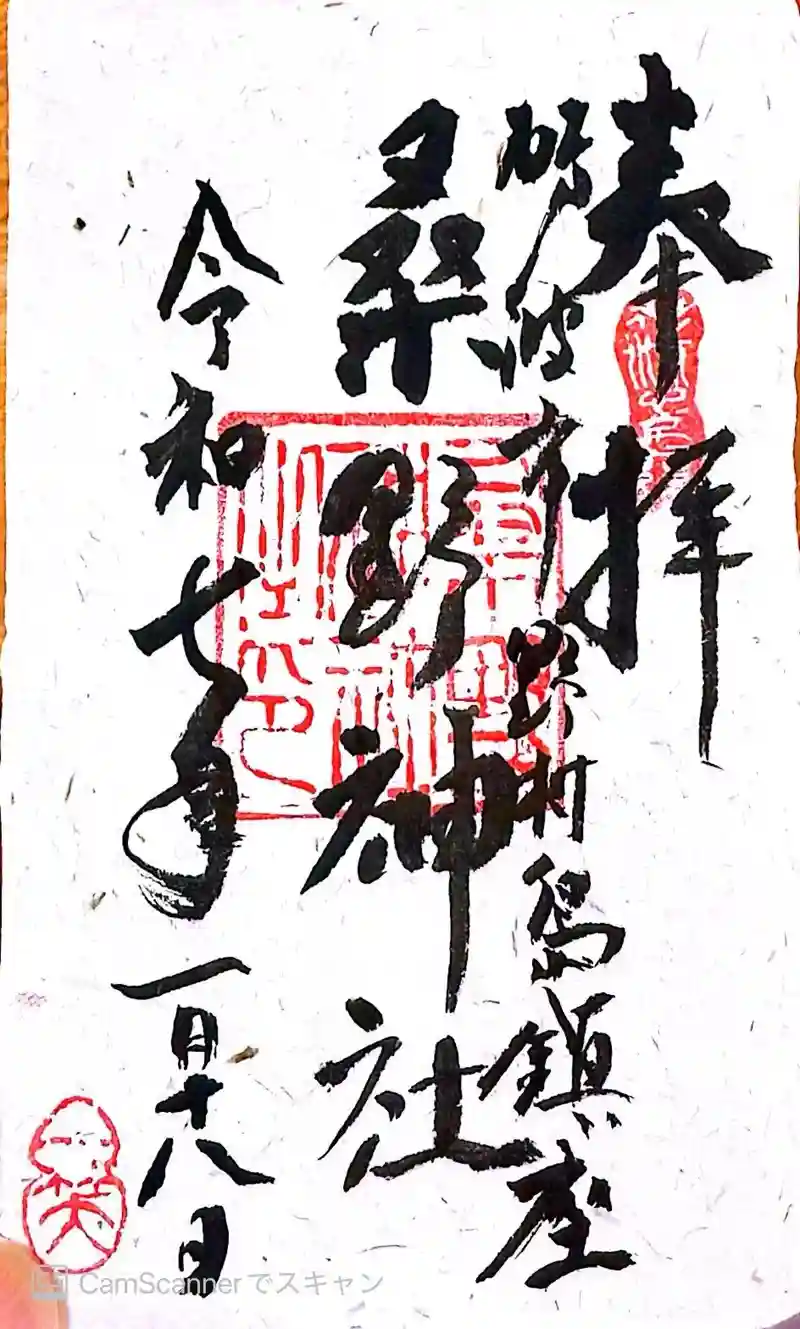 奉拝
砺波市野村島鎮座
桑野神社
令和七年一月十八日
一笑
CamScannerでスキャン